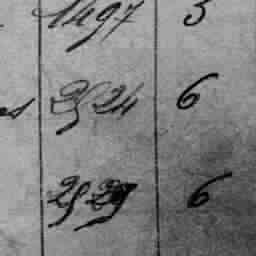 1497 5
es 2524 6
2529 6